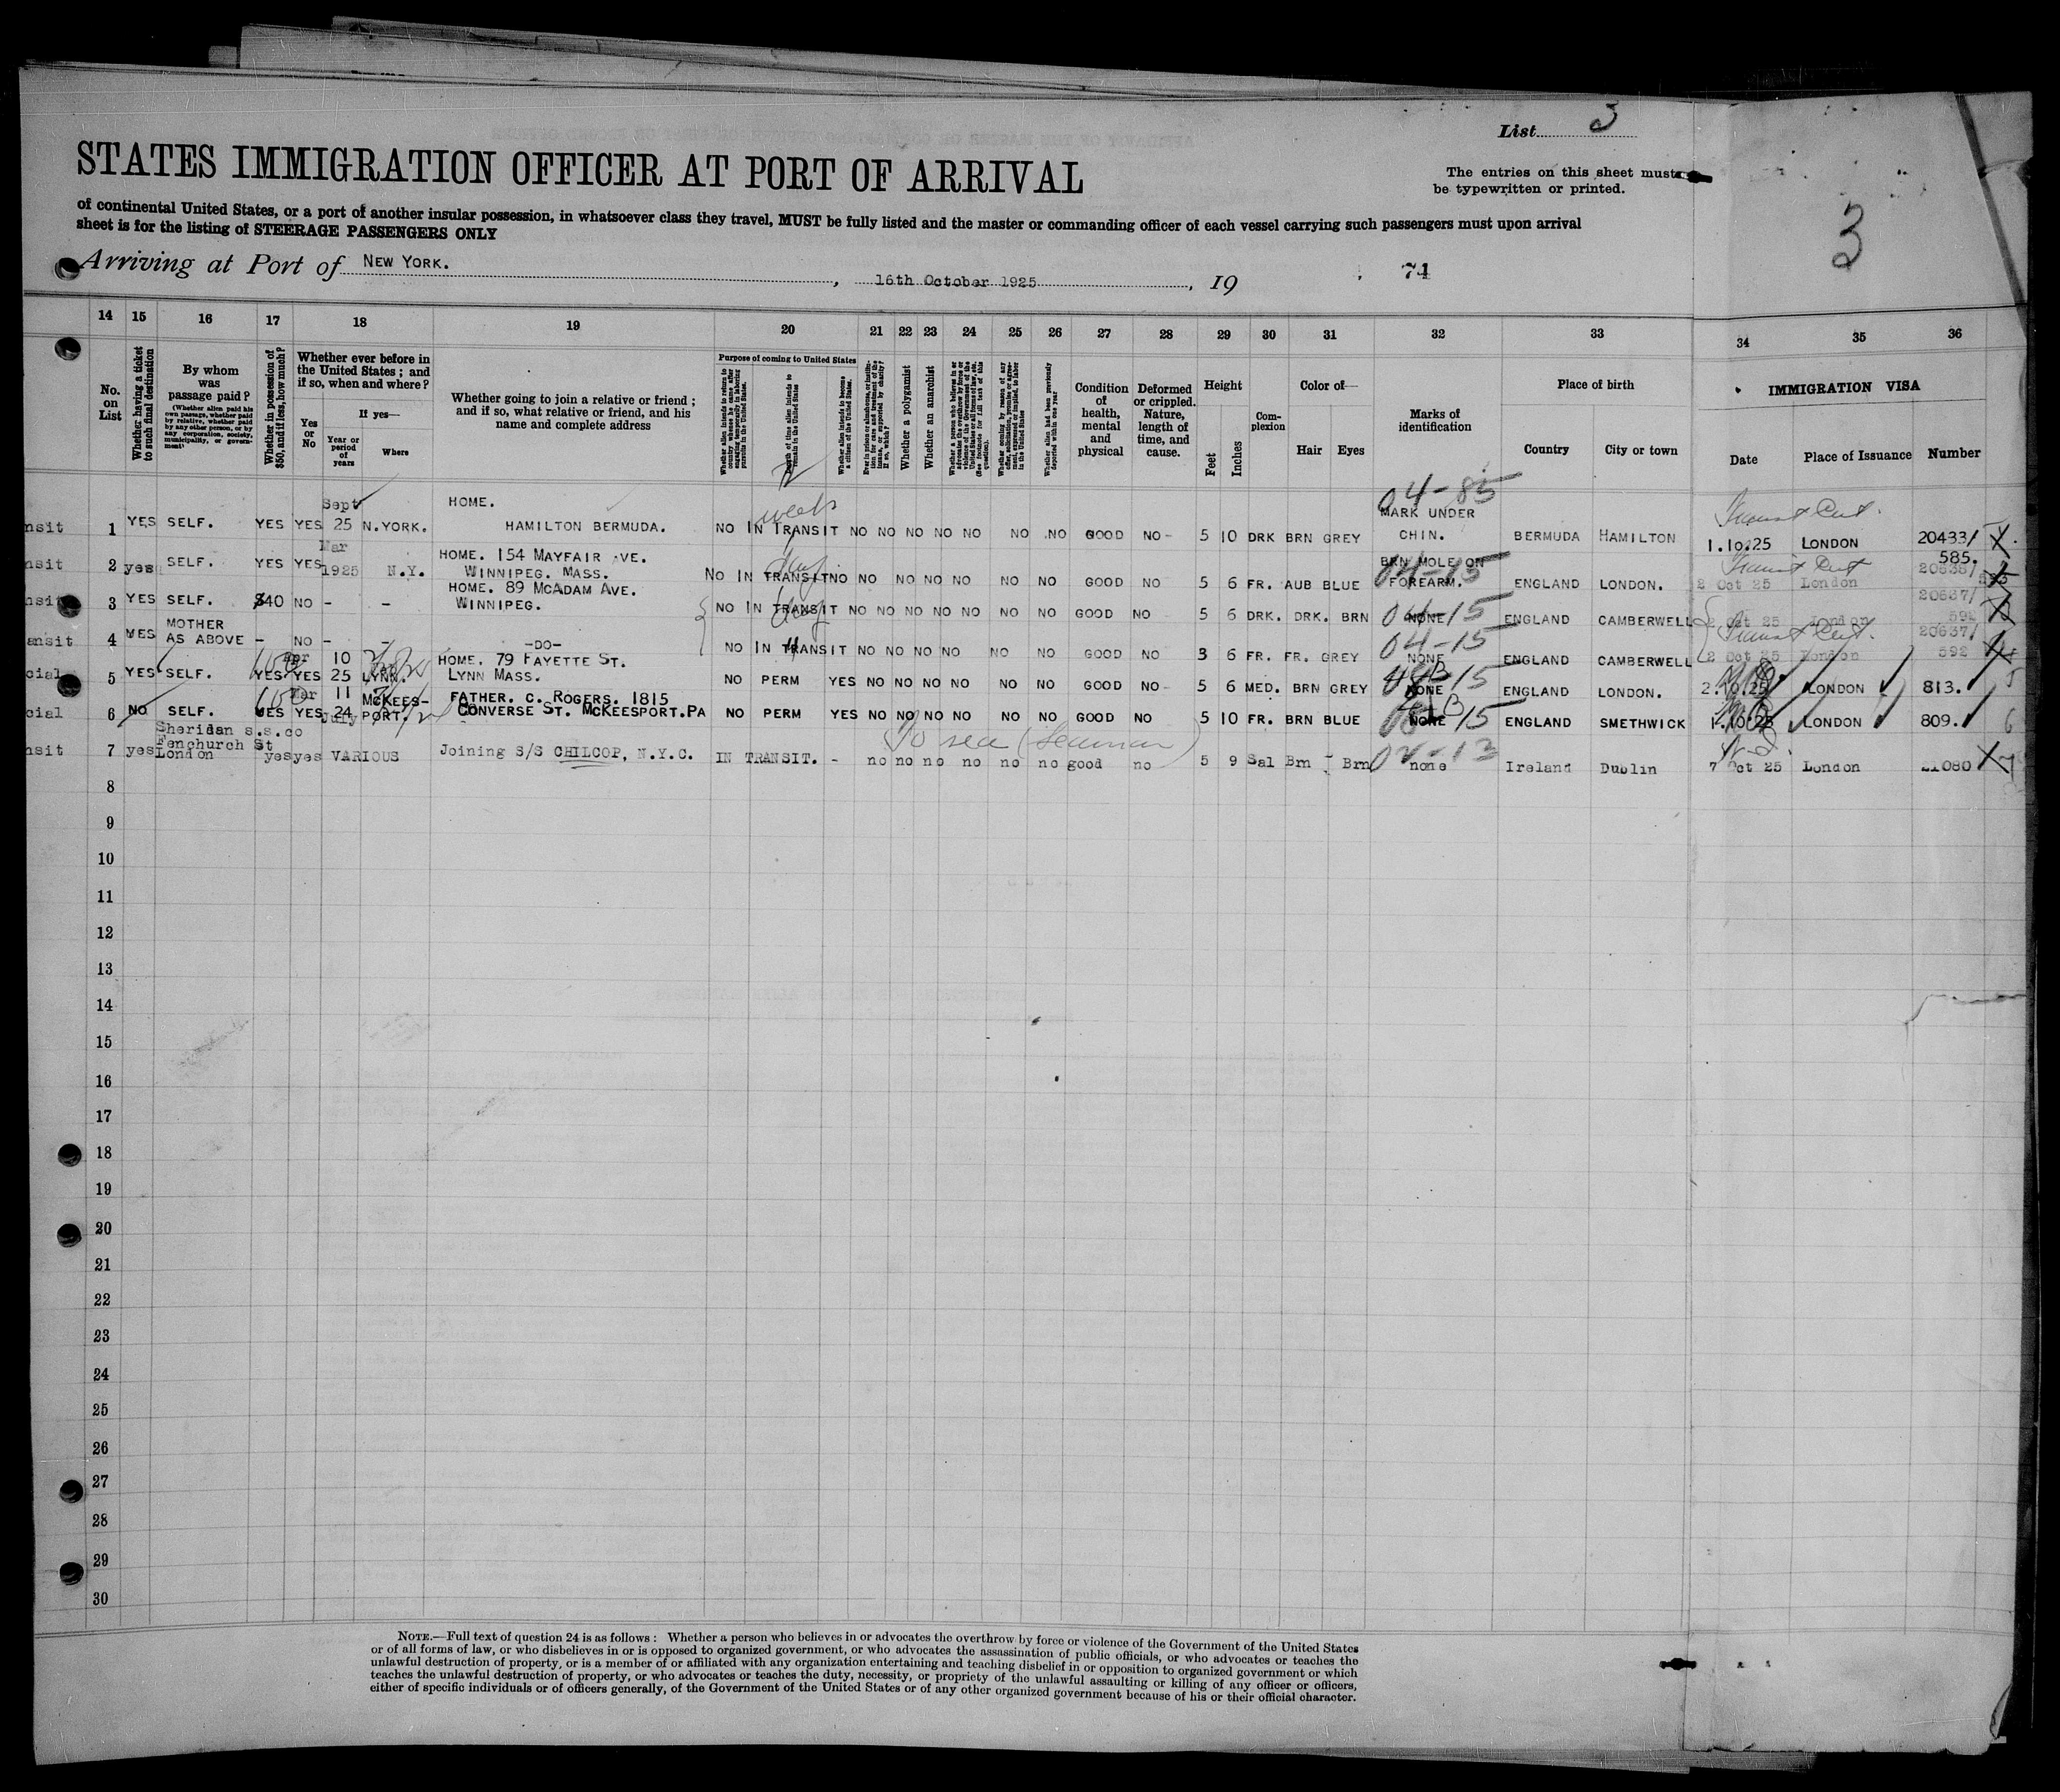 List 3
STATES IMMIGRATION OFFICER AT PORT OF ARRIVAL
The entries on this sheet must
be typewritten or printed.
of continental United States, or a port of another insular possession, in whatsoever class they travel, MUST be fully listed and the master or commanding officer of each vessel carrying such passengers must upon arrival
sheet is for the listing of STEERAGE PASSENGERS ONLY
3
Arriving at Port of NEW YORK. , 16th October 1925 , 19 74
14 15 16 17 18 19 20 21 22 23 24 25 26 27 28 29 30 31 32 33 34 35 36
No. on List
Whether having a ticket to such final destination
By whom was passage paid?
(Whether alien paid his own passage, whether paid by relative, whether paid by any other person, or by any corporation, society, municipality, or government)
Whether in possession of $50, and if less, how much?
Whether ever before in the United States; and if so, when and where?
Yes or No
If yes—
Year or period of years
Where
Whether going to join a relative or friend; and if so, what relative or friend, and his name and complete address
Purpose of coming to United States
Whether alien intends to return to country whence he came after engaging temporarily in laboring pursuits in the United States.
Length of time alien intends to remain in the United States
Whether alien intends to become a citizen of the United States.
Whether a polygamist
Whether an anarchist
Whether alien had been previously deported within one year
Condition of health, mental and physical
Deformed or crippled. Nature, length of time, and cause.
Height
Feet
Inches
Complexion
Color of—
Hair Eyes
Marks of identification
Place of birth
Country City or town
IMMIGRATION VISA
Date Place of Issuance Number
Sept HOME. 04-85
weeks MARK UNDER Transit Cert.
nsit 1 YES SELF. YES YES 25 N.YORK. HAMILTON BERMUDA. NO IN TRANSIT NO NO NO NO NO NO NO GOOD NO- 5 10 DRK BRN GREY CHIN. BERMUDA HAMILTON 1.10.25 LONDON 20433/
585.
Mar HOME. 154 MAYFAIR AVE. BRN MOLE ON Transit Cert
nsit 2 yes SELF. YES YES 1925 N.Y. WINNIPEG. MASS. NO IN TRANSIT NO NO NO NO NO NO NO GOOD NO 5 6 FR. AUB BLUE FOREARM. 04-15 ENGLAND LONDON. 2 Oct 25 London
HOME. 89 MCADAM AVE. 20637/
nsit 3 YES SELF. $40 NO - - WINNIPEG. NO IN TRANSIT NO NO NO NO NO NO NO GOOD NO 5 6 DRK. DRK. BRN NONE 04-15 ENGLAND CAMBERWELL 2 Oct 25 London 592
MOTHER 04-15 Transit Cert. 20637/
ansit 4 YES AS ABOVE - NO - - -DO- NO IN TRANSIT NO NO NO NO NO NO NO GOOD NO 3 6 FR. FR. GREY NONE ENGLAND CAMBERWELL 2 Oct 25 London 592
10 HOME. 79 FAYETTE ST.
cial 5 YES SELF. YES YES 25 LYNN. LYNN MASS. NO PERM YES NO NO NO NO NO NO GOOD NO- 5 6 MED. BRN GREY NONE 15 ENGLAND LONDON. 2.10.25 LONDON 813. 5
Mar 11 MCKEES- FATHER. C. ROGERS. 1815
cial 6 NO SELF. YES YES July 24 PORT. CONVERSE ST. MCKEESPORT.PA NO PERM YES NO NO NO NO NO NO GOOD NO 5 10 FR. BRN BLUE NONE 15 ENGLAND SMETHWICK 1.10.25 LONDON 809. 6
Sheridan s.s.co
Fenchurch St To sea (Seaman)
nsit 7 yes London yes yes VARIOUS Joining S/S CHILCOP, N.Y.C. IN TRANSIT. - no no no no no no good no 5 9 Sal Brn Brn none Ireland Dublin 7 Oct 25 London 21080 7
8
9
10
11
12
13
14
15
16
17
18
19
20
21
22
23
24
25
26
27
28
29
30
NOTE.—Full text of question 24 is as follows: Whether a person who believes in or advocates the overthrow by force or violence of the Government of the United States
or of all forms of law, or who disbelieves in or is opposed to organized government, or who advocates the assassination of public officials, or who advocates or teaches the
unlawful destruction of property, or is a member of or affiliated with any organization entertaining and teaching disbelief in or opposition to organized government or which
teaches the unlawful destruction of property, or who advocates or teaches the duty, necessity, or propriety of the unlawful assaulting or killing of any officer or officers,
either of specific individuals or of officers generally, of the Government of the United States or of any other organized government because of his or their official character.